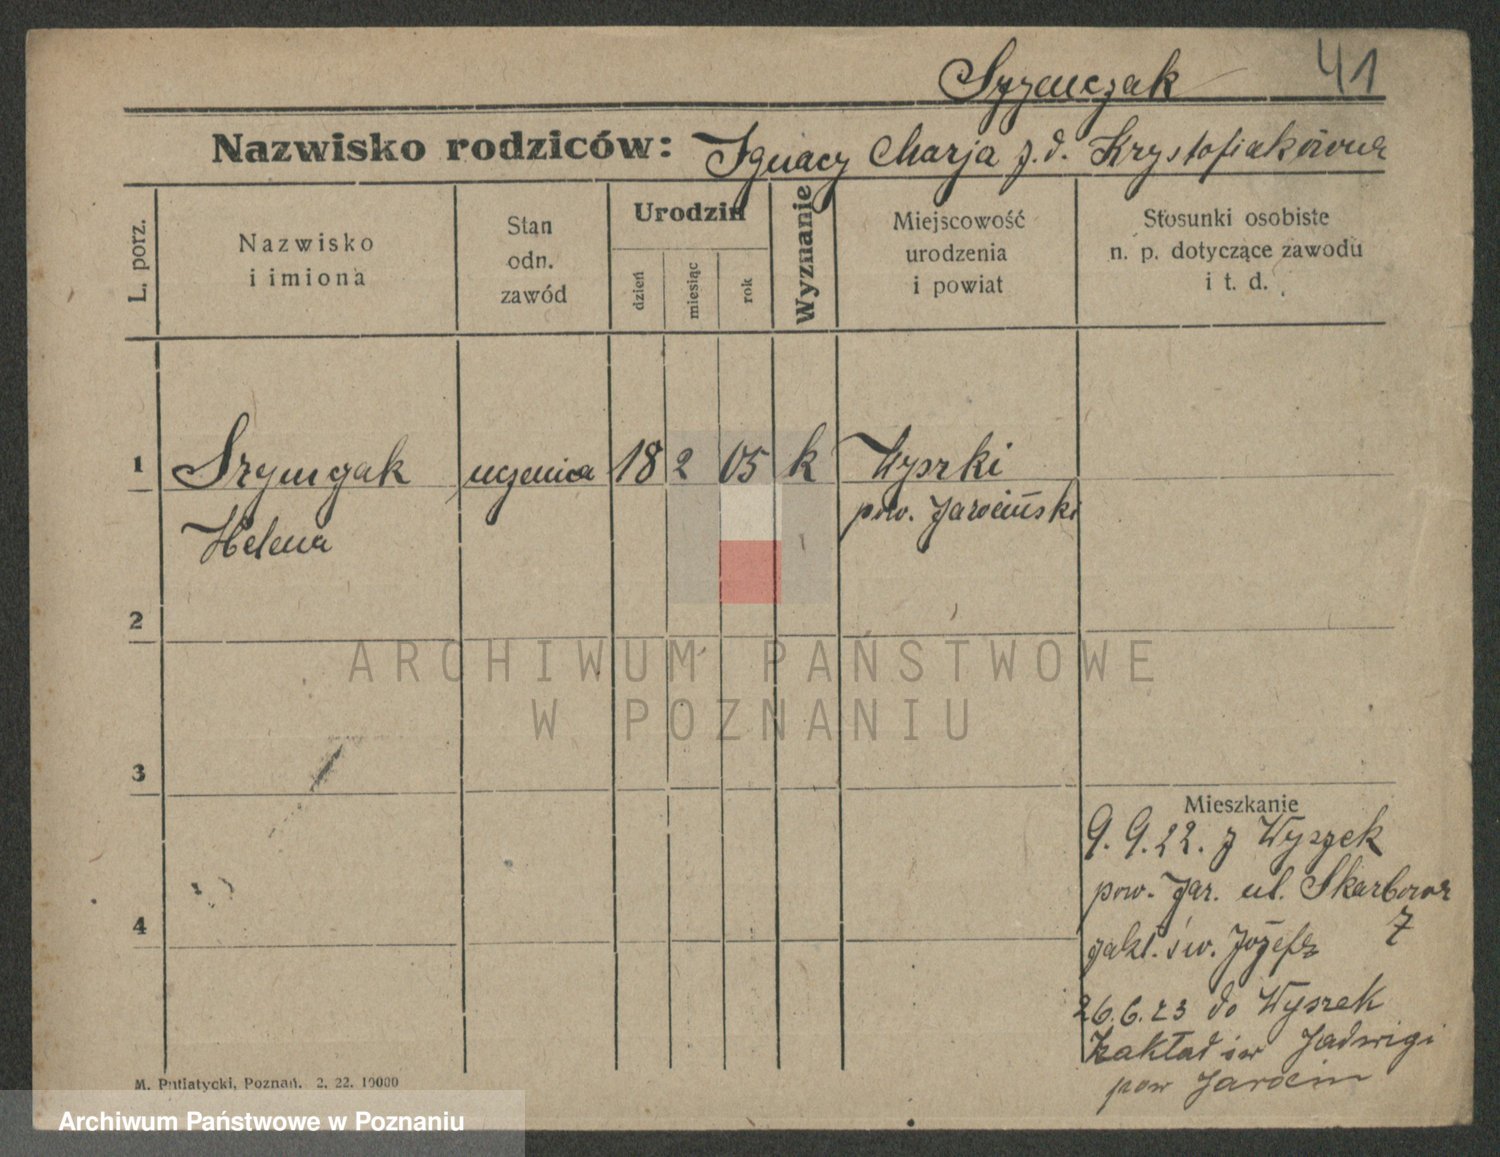 41
Szymczak
Nazwisko rodziców: Ignacy Marja z.d. Krystofiakówna
L. porz.
Nazwisko
i imiona
Stan
odn.
zawód
Urodzin
dzień
miesiąc
rok
Wyznanie
Miejscowość
urodzenia
i powiat
Stosunki osobiste
n. p. dotyczące zawodu
i t. d.
1 Szymczak uczenica 18 2 05 k Wyszki
Helena pow. Jarociński
2
3
4
Mieszkanie
9. 9. 22. z Wyszek
pow. Jar. ul. Skarbowa
7
zakł. św. Józefa
26. 6. 23 do Wyszek
Zakład św Jadwigi
pow Jarocin
M. Putiatycki, Poznań. 2. 22. 10000
ARCHIWUM PAŃSTWOWE
W POZNANIU
Archiwum Państwowe w Poznaniu